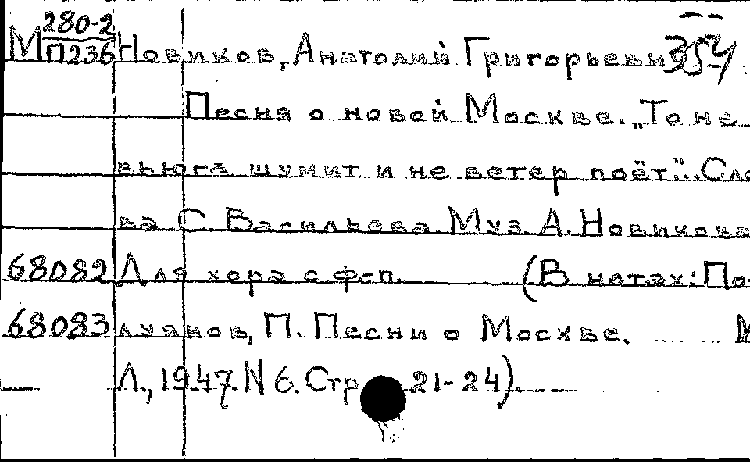 280-2
М П236 Новиков, Анатолий Григорьеви 354
Песня о новой Москве. „То не
вьюга шумит и не ветер поёт". Сло
ва С. Васильева Муз. А. Новикова
68082 Для хора с фп. (В нотах: По
68083 луянов, П. Песни о Москве. М
Л., 1947. N 6. Стр. 21-24).